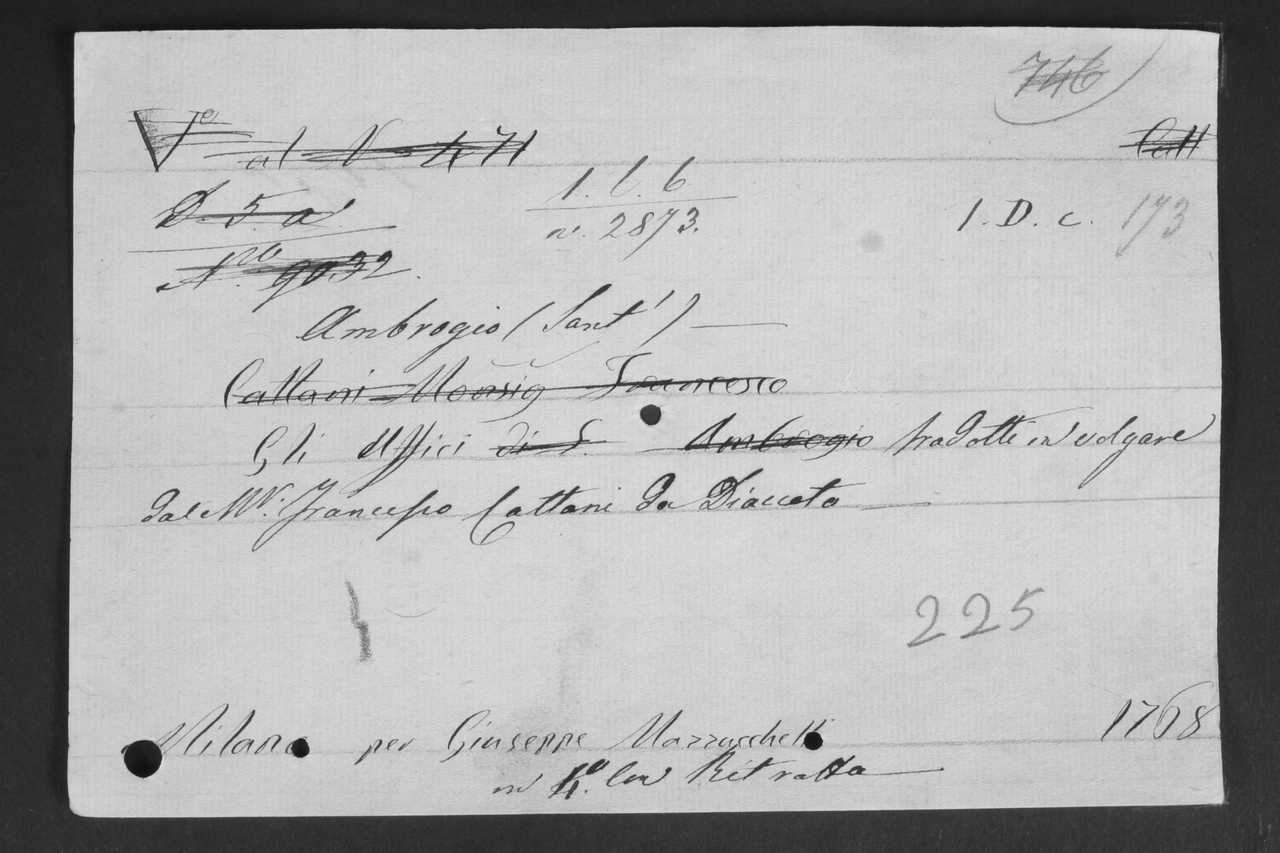 746
V.o al N 471 Catt
D. 5. a'
1. C. 6
1. D. c. 173
n. 2873.
N.ro 9032.
Ambrogio (Sant')
Cattani Monsig Francesco
Gli Uffici di S. Ambrogio tradotti in volgare
dal Francesco Cattani da Diacceto
225
Milano per Giuseppe Mazzucchelli 1768
in 4.o Con Ritratto